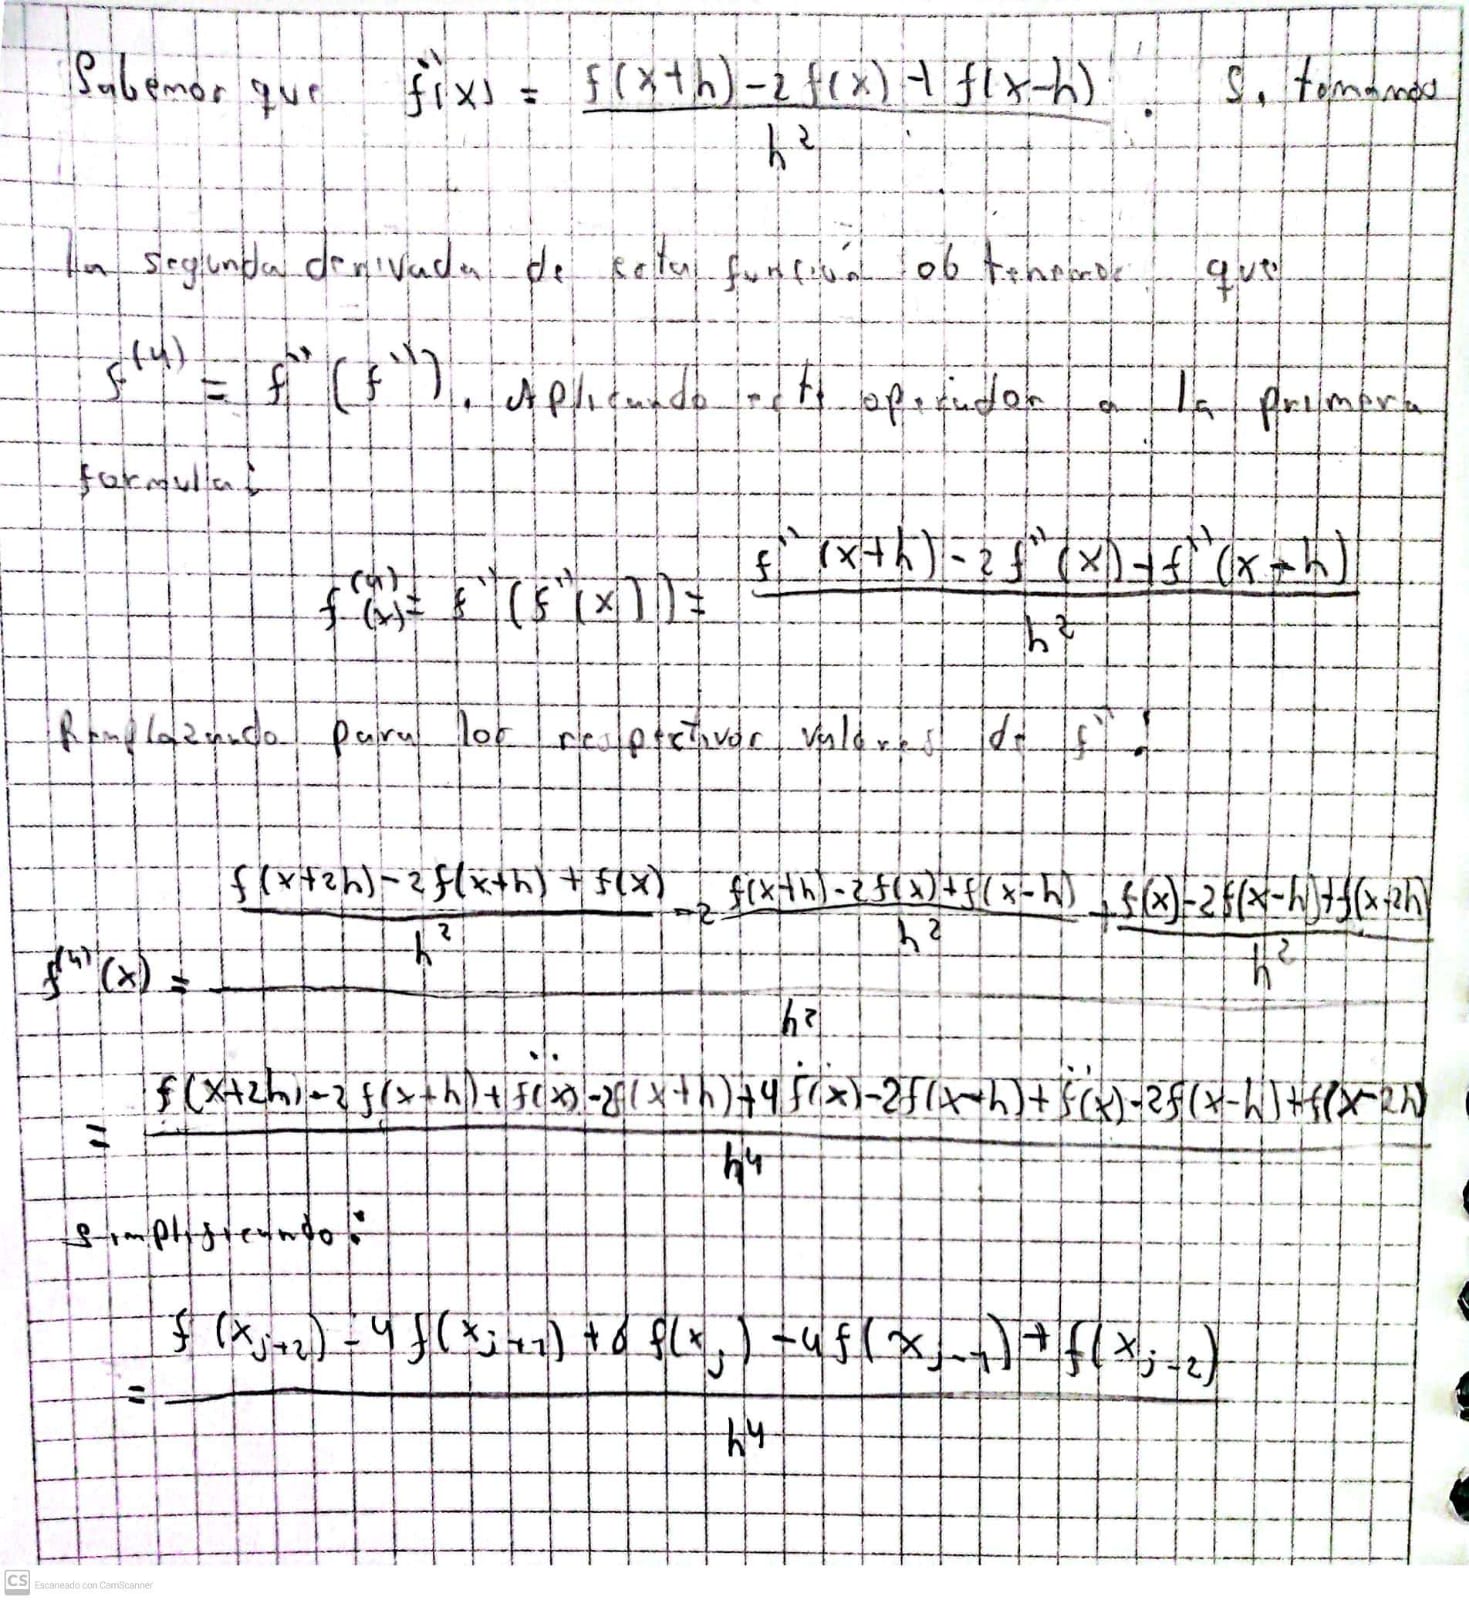 Sabemos que f''(x) = (f(x+h) - 2f(x) + f(x-h)) / h². Si tomamos
la segunda derivada de esta función obtenemos que
f⁽⁴⁾ = f''(f''). Aplicando este operador a la primera
formula:
f⁽⁴⁾(x) = f''(f''(x)) = (f''(x+h) - 2f''(x) + f''(x-h)) / h²
Remplazando para los respectivos valores de f'':
f⁽⁴⁾(x) = ((f(x+2h) - 2f(x+h) + f(x)) / h² - 2 (f(x+h) - 2f(x) + f(x-h)) / h² + (f(x) - 2f(x-h) + f(x-2h)) / h²) / h²
= (f(x+2h) - 2f(x+h) + f(x) - 2f(x+h) + 4f(x) - 2f(x-h) + f(x) - 2f(x-h) + f(x-2h)) / h⁴
Simplificando:
= (f(xⱼ₊₂) - 4f(xⱼ₊₁) + 6f(xⱼ) - 4f(xⱼ₋₁) + f(xⱼ₋₂)) / h⁴
CS Escaneado con CamScanner